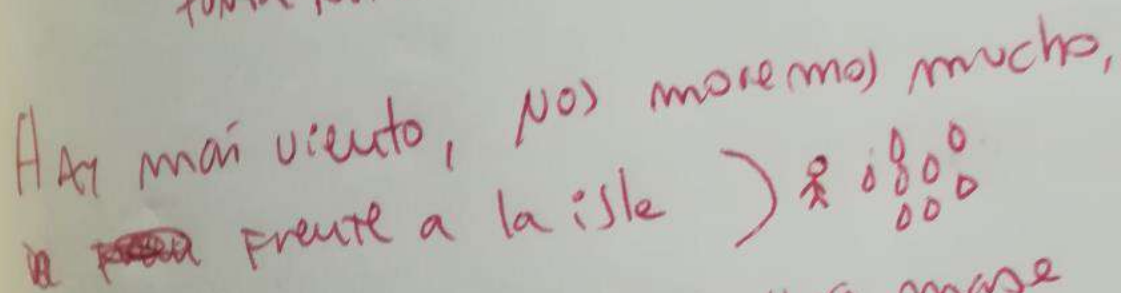 HAY mas viento, Nos movemos mucho,
frente a la isla